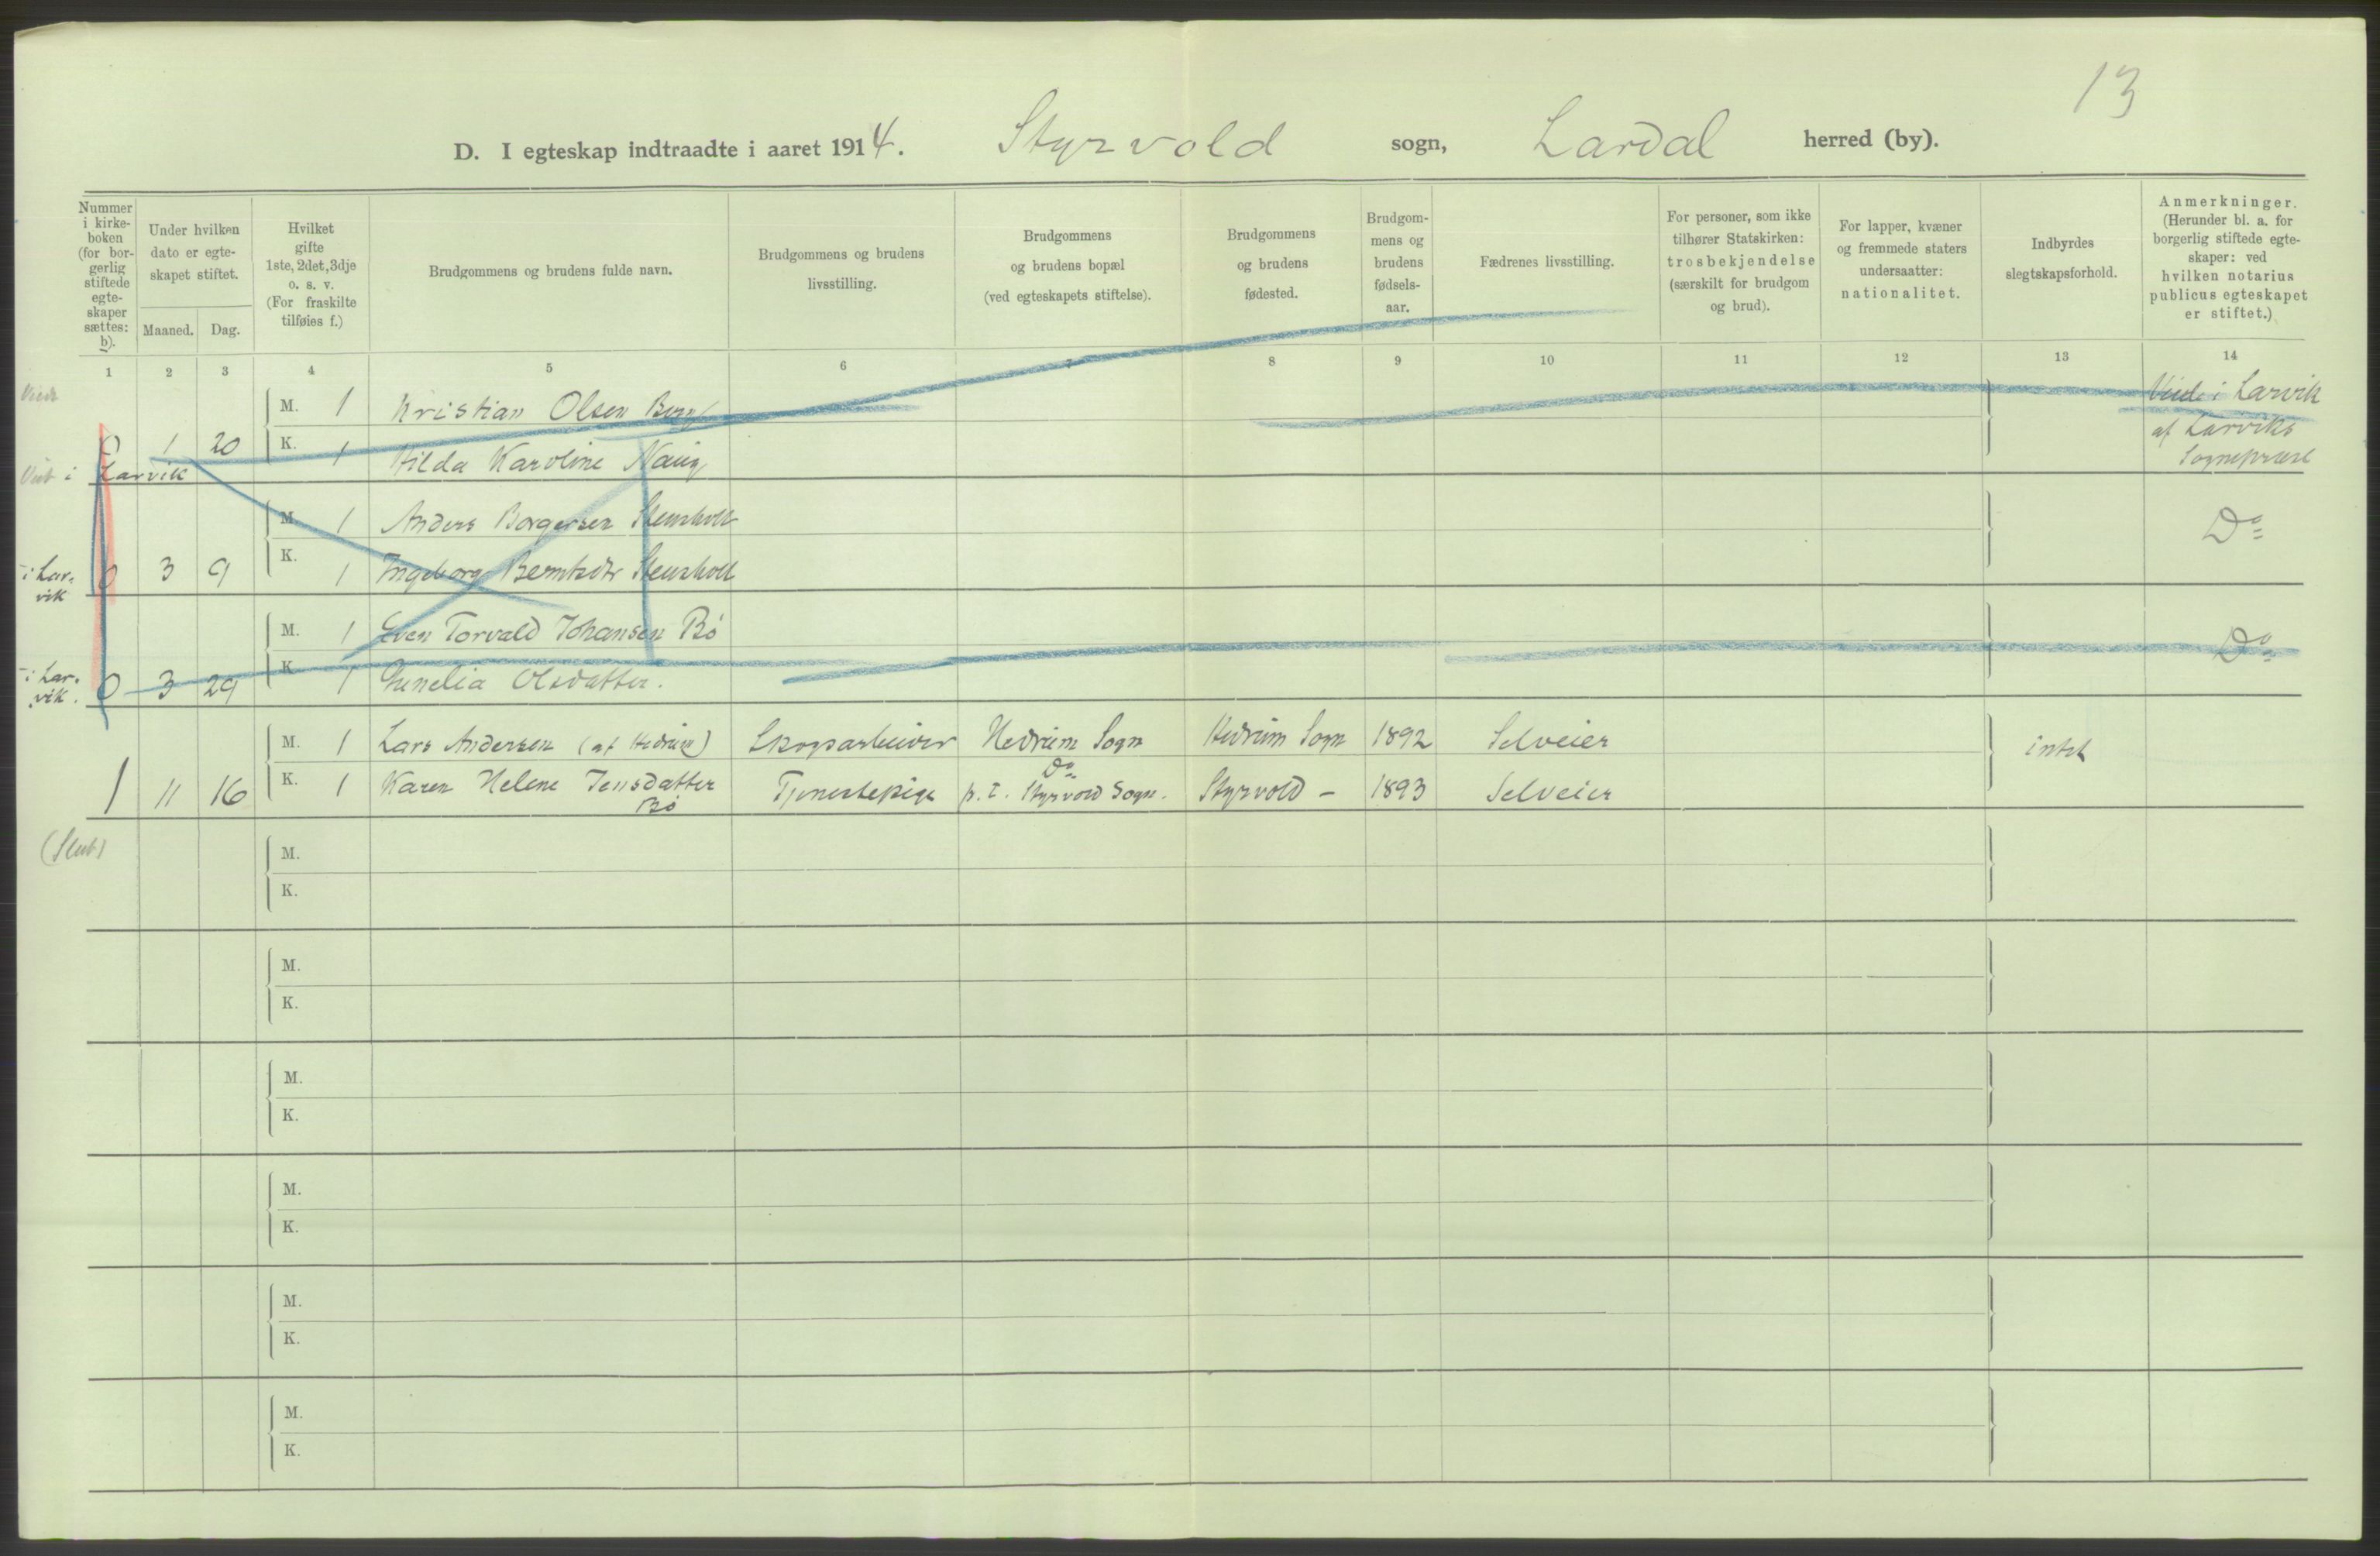 13
D. I egteskap indtraadte i aaret 1914. Styrvold sogn, Lardal herred (by).
Nummer
i kirke-
boken
(for bor-
gerlig
stiftede
egte-
skaper
sættes:
b).
Under hvilken
dato er egte-
skapet stiftet.
Maaned. Dag.
Hvilket
gifte
1ste, 2det, 3dje
o. s. v.
(For fraskilte
tilføies f.)
Brudgommens og brudens fulde navn.
Brudgommens og brudens
livsstilling.
Brudgommens
og brudens bopæl
(ved egteskapets stiftelse).
Brudgommens
og brudens
fødested.
Brudgom-
mens og
brudens
fødsels-
aar.
Fædrenes livsstilling.
For personer, som ikke
tilhører Statskirken:
trosbekjendelse
(særskilt for brudgom
og brud).
For lapper, kvæner
og fremmede staters
undersaatter:
nationalitet.
Indbyrdes
slegtskapsforhold.
Anmerkninger.
(Herunder bl. a. for
borgerlig stiftede egte-
skaper: ved
hvilken notarius
publicus egteskapet
er stiftet.)
1 2 3 4 5 6 7 8 9 10 11 12 13 14
M. 1 Kristian Olsen Berg
Viede i Larvik
af Larviks
Sogneprest
0 1 20 K. 1 Hilda Karoline Haug
i Larvik
M. 1 Anders Borgersen Stensholt Do
i Lar-
vik
0 3 9 K. 1 Ingeborg Berntsdtr Stensholt
M. 1 Even Torvald Johansen Bö Do
i Lar-
vik.
0 3 29 K. 1 Olsdatter.
M. 1 Lars Andersen (af Hedrum) Skogsarbeider Hedrum Sogn Hedrum Sogn 1892 Selveier intet
1 11 16 K. 1 Karen Helene Jensdatter
Bö
Tjenestepige Do
p. t. Styrvold Sogn. Styrvold – 1893 Selveier
(Slut)
M.
K.
M.
K.
M.
K.
M.
K.
M.
K.
M.
K.